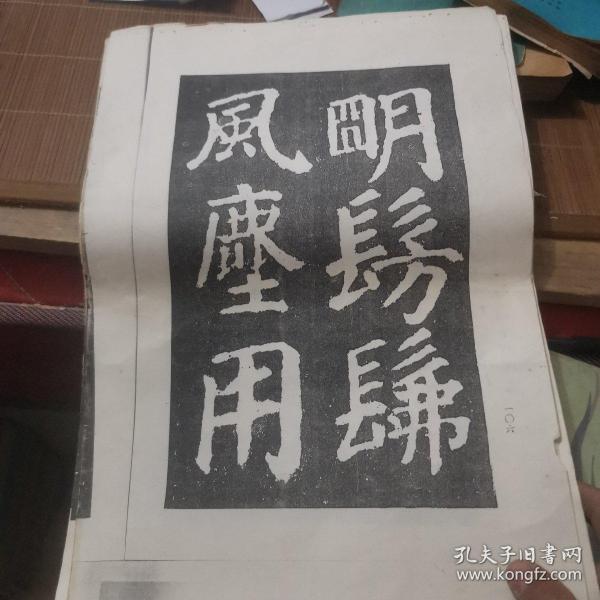 明髣髴
風塵用
一〇六
孔夫子旧书网
www.kongfz.com